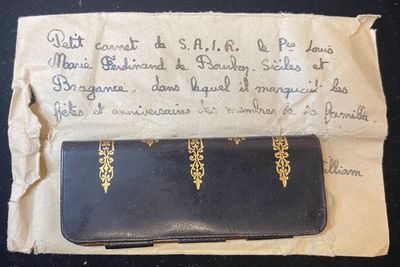 Petit carnet de S.A.I.R. le Pce Louis
Marie Ferdinand de Bourbon. Siciles et
Bragance, dans lequel il marquait les
fêtes et anniversaires des membres de la famille.
William